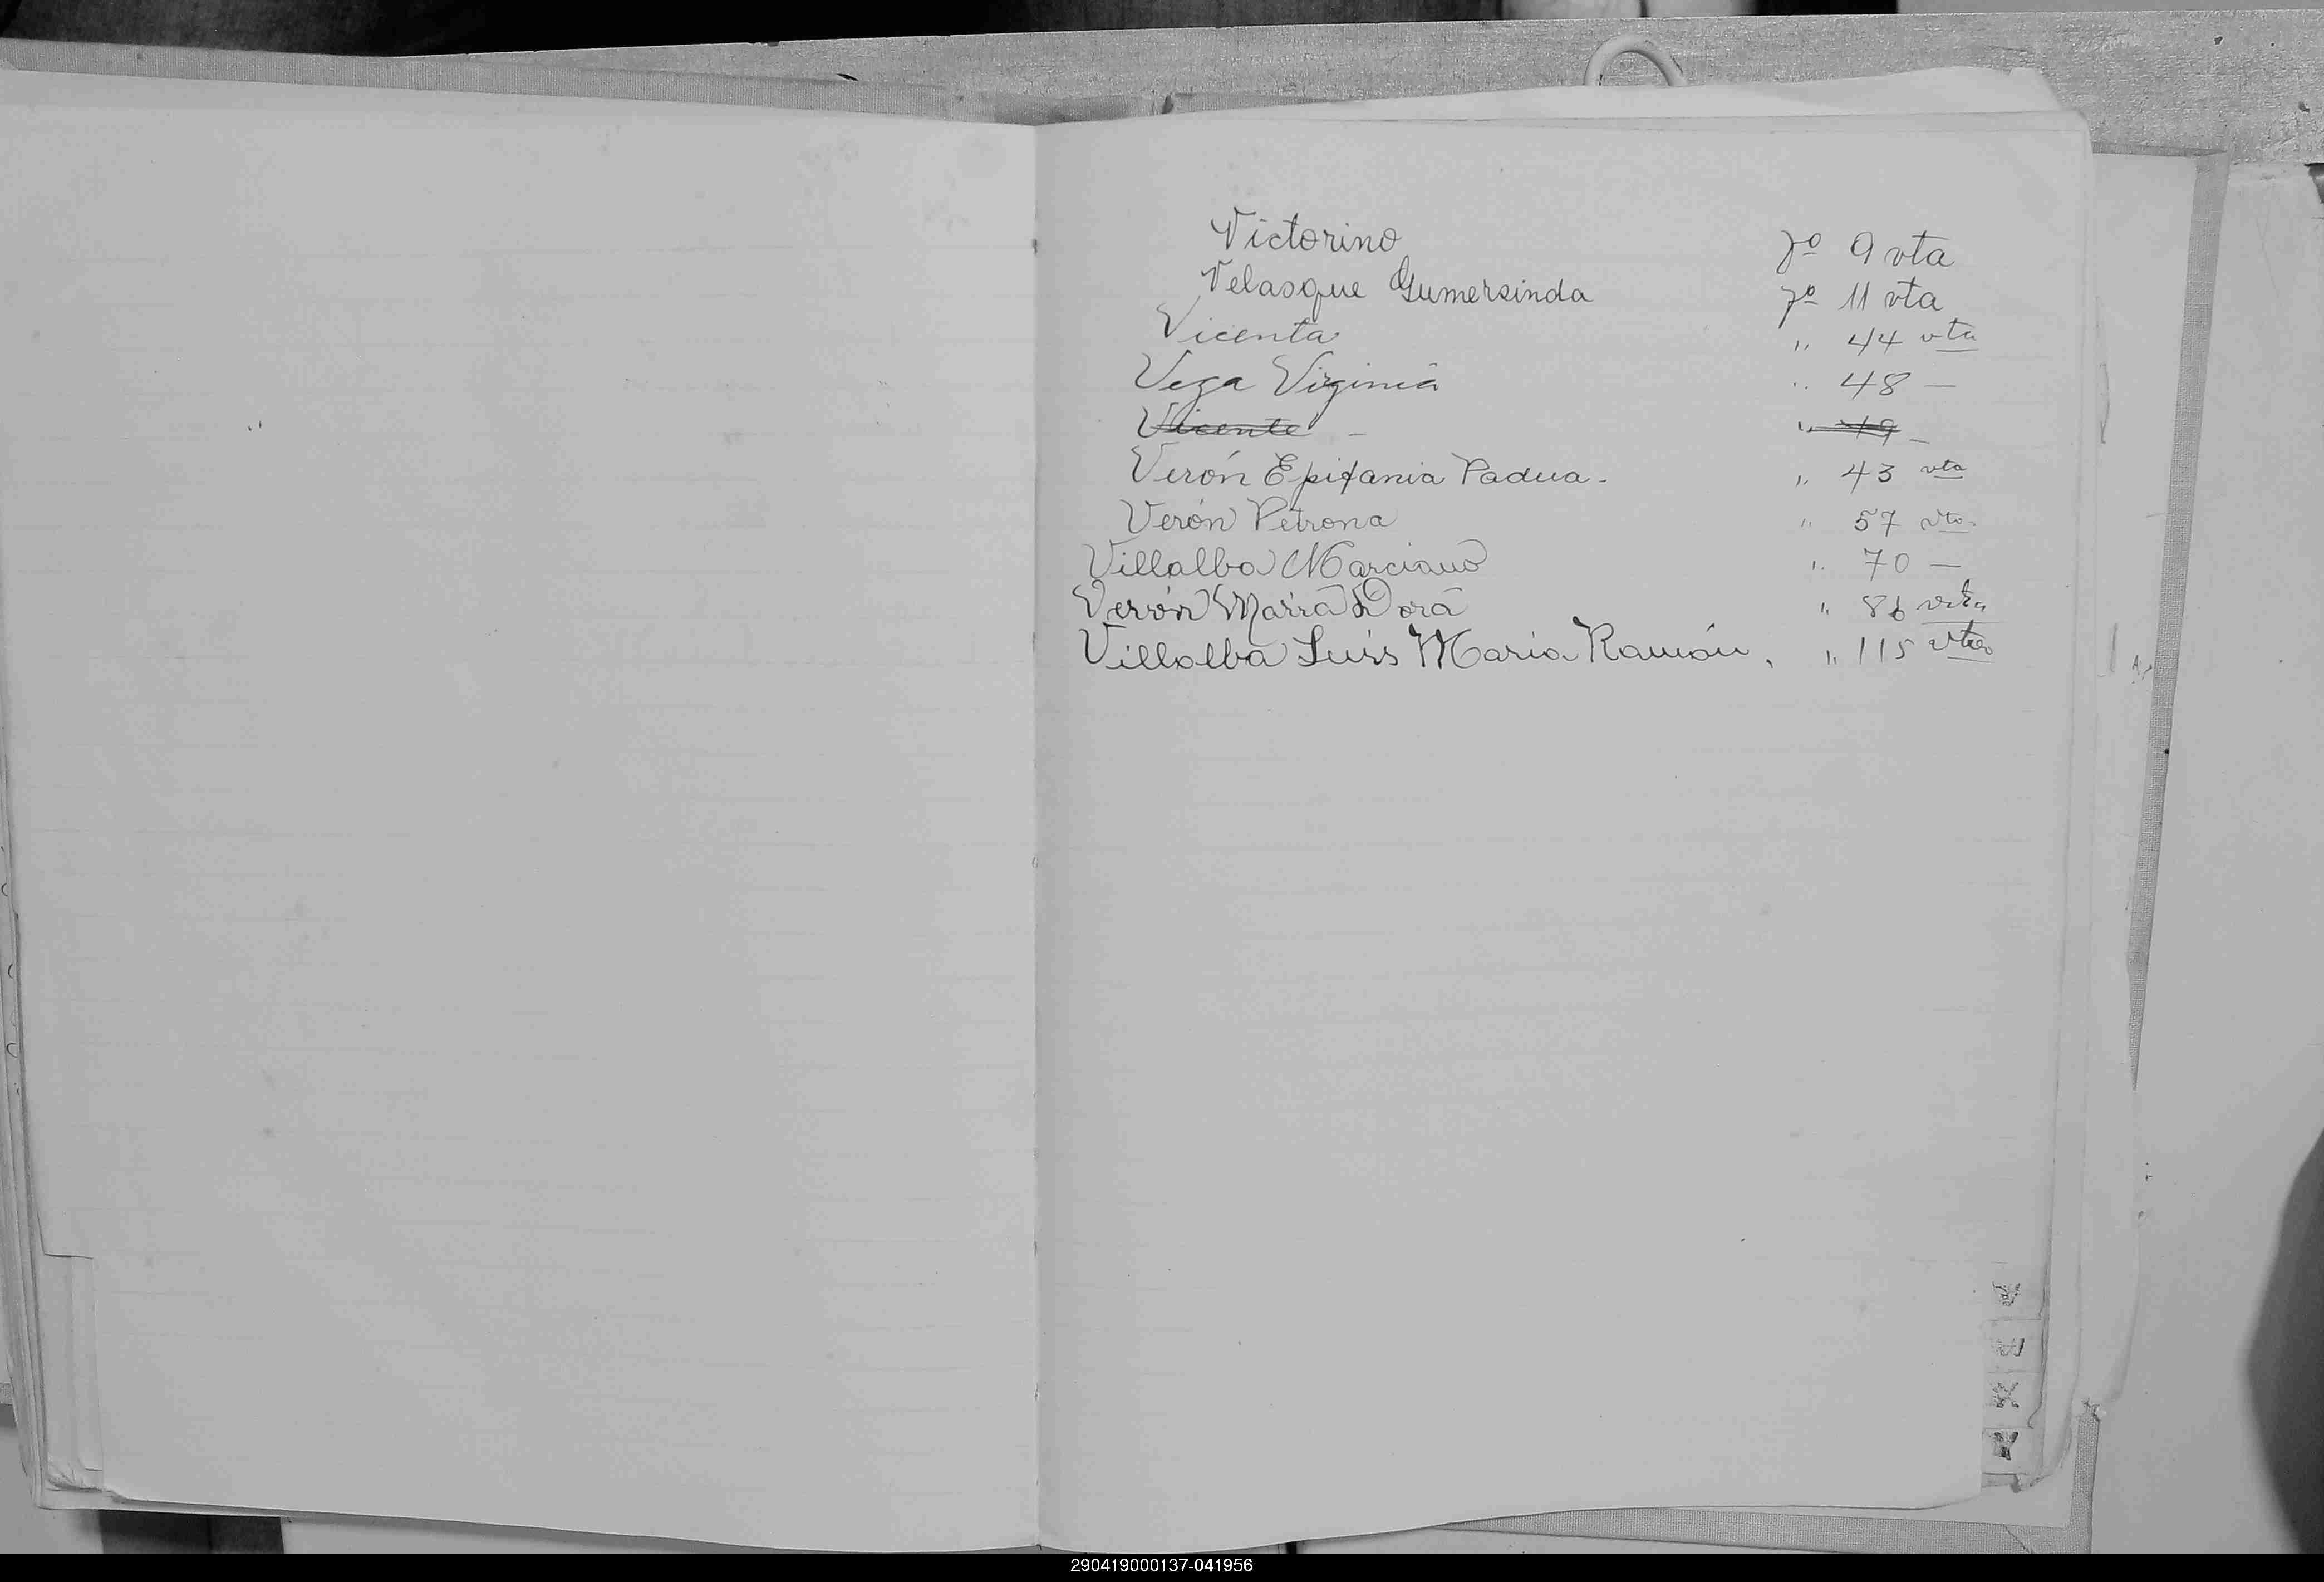 Victorino fº 9 vta
Velasque Gumersinda fº 11 vta
Vicenta " 44 vta
Vega Virginia " 48 —
Vicente — " 49 —
Verón Epifania Padua. " 43 vta
Verón Petrona " 57 vta.
Villalba Marciano " 70 —
Verón María Dora " 86 vta
Villalba Luis Maria Ramón. " 115 vta
X
Y
290419000137-041956